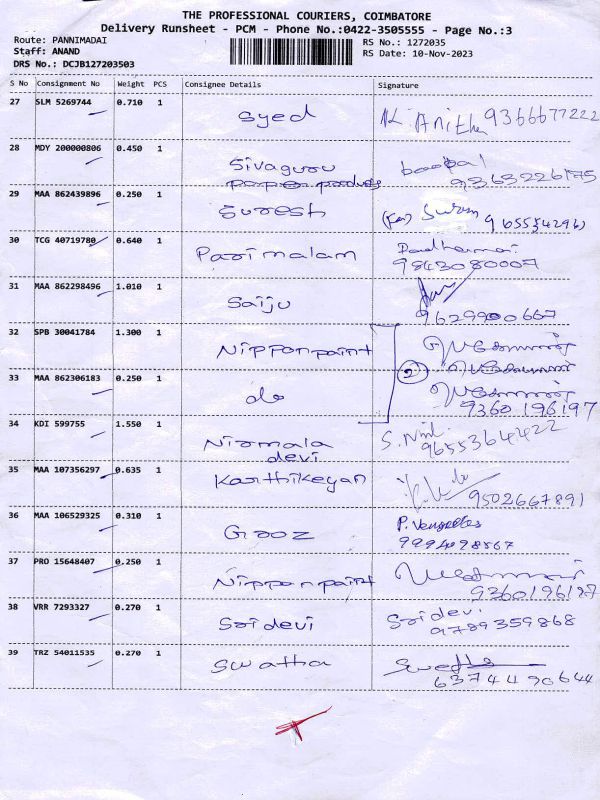 THE PROFESSIONAL COURIERS, COIMBATORE
Delivery Runsheet - PCM - Phone No.:0422-3505555 - Page No.:3
Route: PANNIMADAI
Staff: ANAND
DRS No.: DCJB127203503
RS No.: 1272035
RS Date: 10-Nov-2023
S No Consignment No Weight PCS Consignee Details Signature
27 SLM 5269744 0.710 1 Syed K. Anitha 9366677222
28 MDY 200000806 0.450 1 Sivaguru boopal
paper products 9363226175
29 MAA 862439896 0.250 1 Suresh
30 TCG 40719780 0.640 1 Parimalam
9843080007
31 MAA 862298496 1.010 1 Saiju
9629900667
32 SPB 30041784 1.300 1 Nippon paint
33 MAA 862306183 0.250 1 do 2
9360196197
34 KDI 599755 1.550 1 Nirmala
devi 9655364422
35 MAA 107356297 0.635 1 Karthikeyan
9502667891
36 MAA 106529325 0.310 1 P.
9994098567
37 PRO 15648407 0.250 1 Nippon paint
9360196197
38 VRR 7293327 0.270 1 Sridevi Sridevi
9789359868
39 TRZ 54011535 0.270 1 Swatha
6374490644